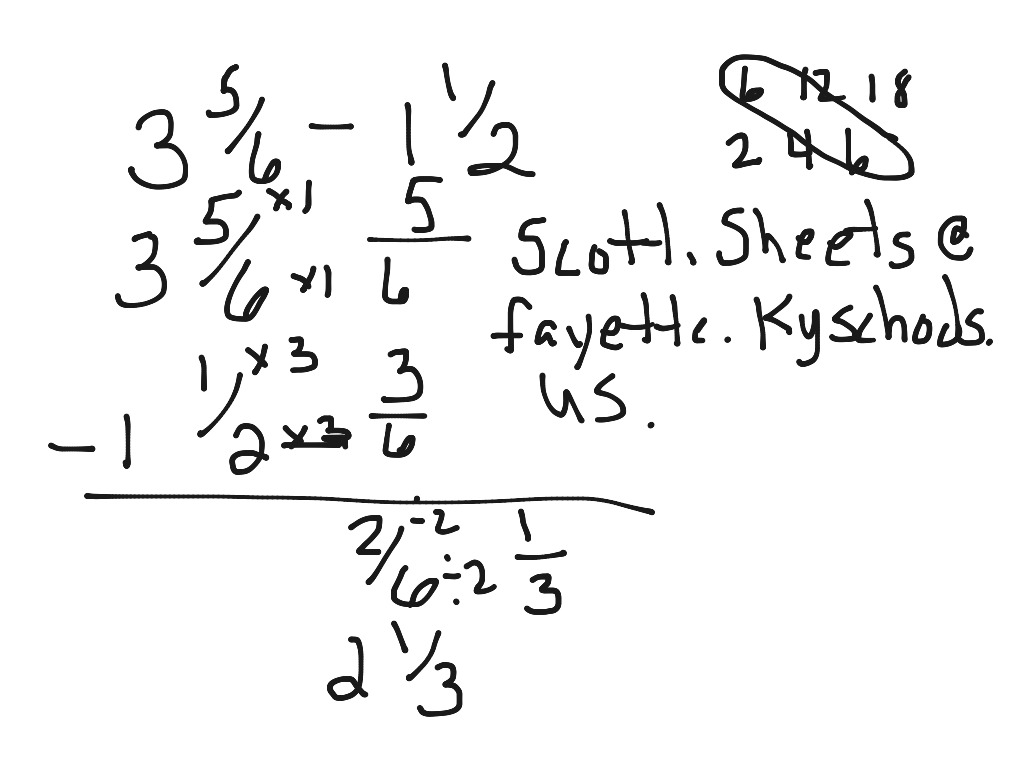 3 5/6 - 1 1/2
6 12 18
2 4 6
3 5/6 x1 x1 5/6
Scott.Sheets@
fayette.Kyschools.
us.
- 1 1/2 x3 x3 3/6
2/6 -2 ÷2 1/3
2 1/3